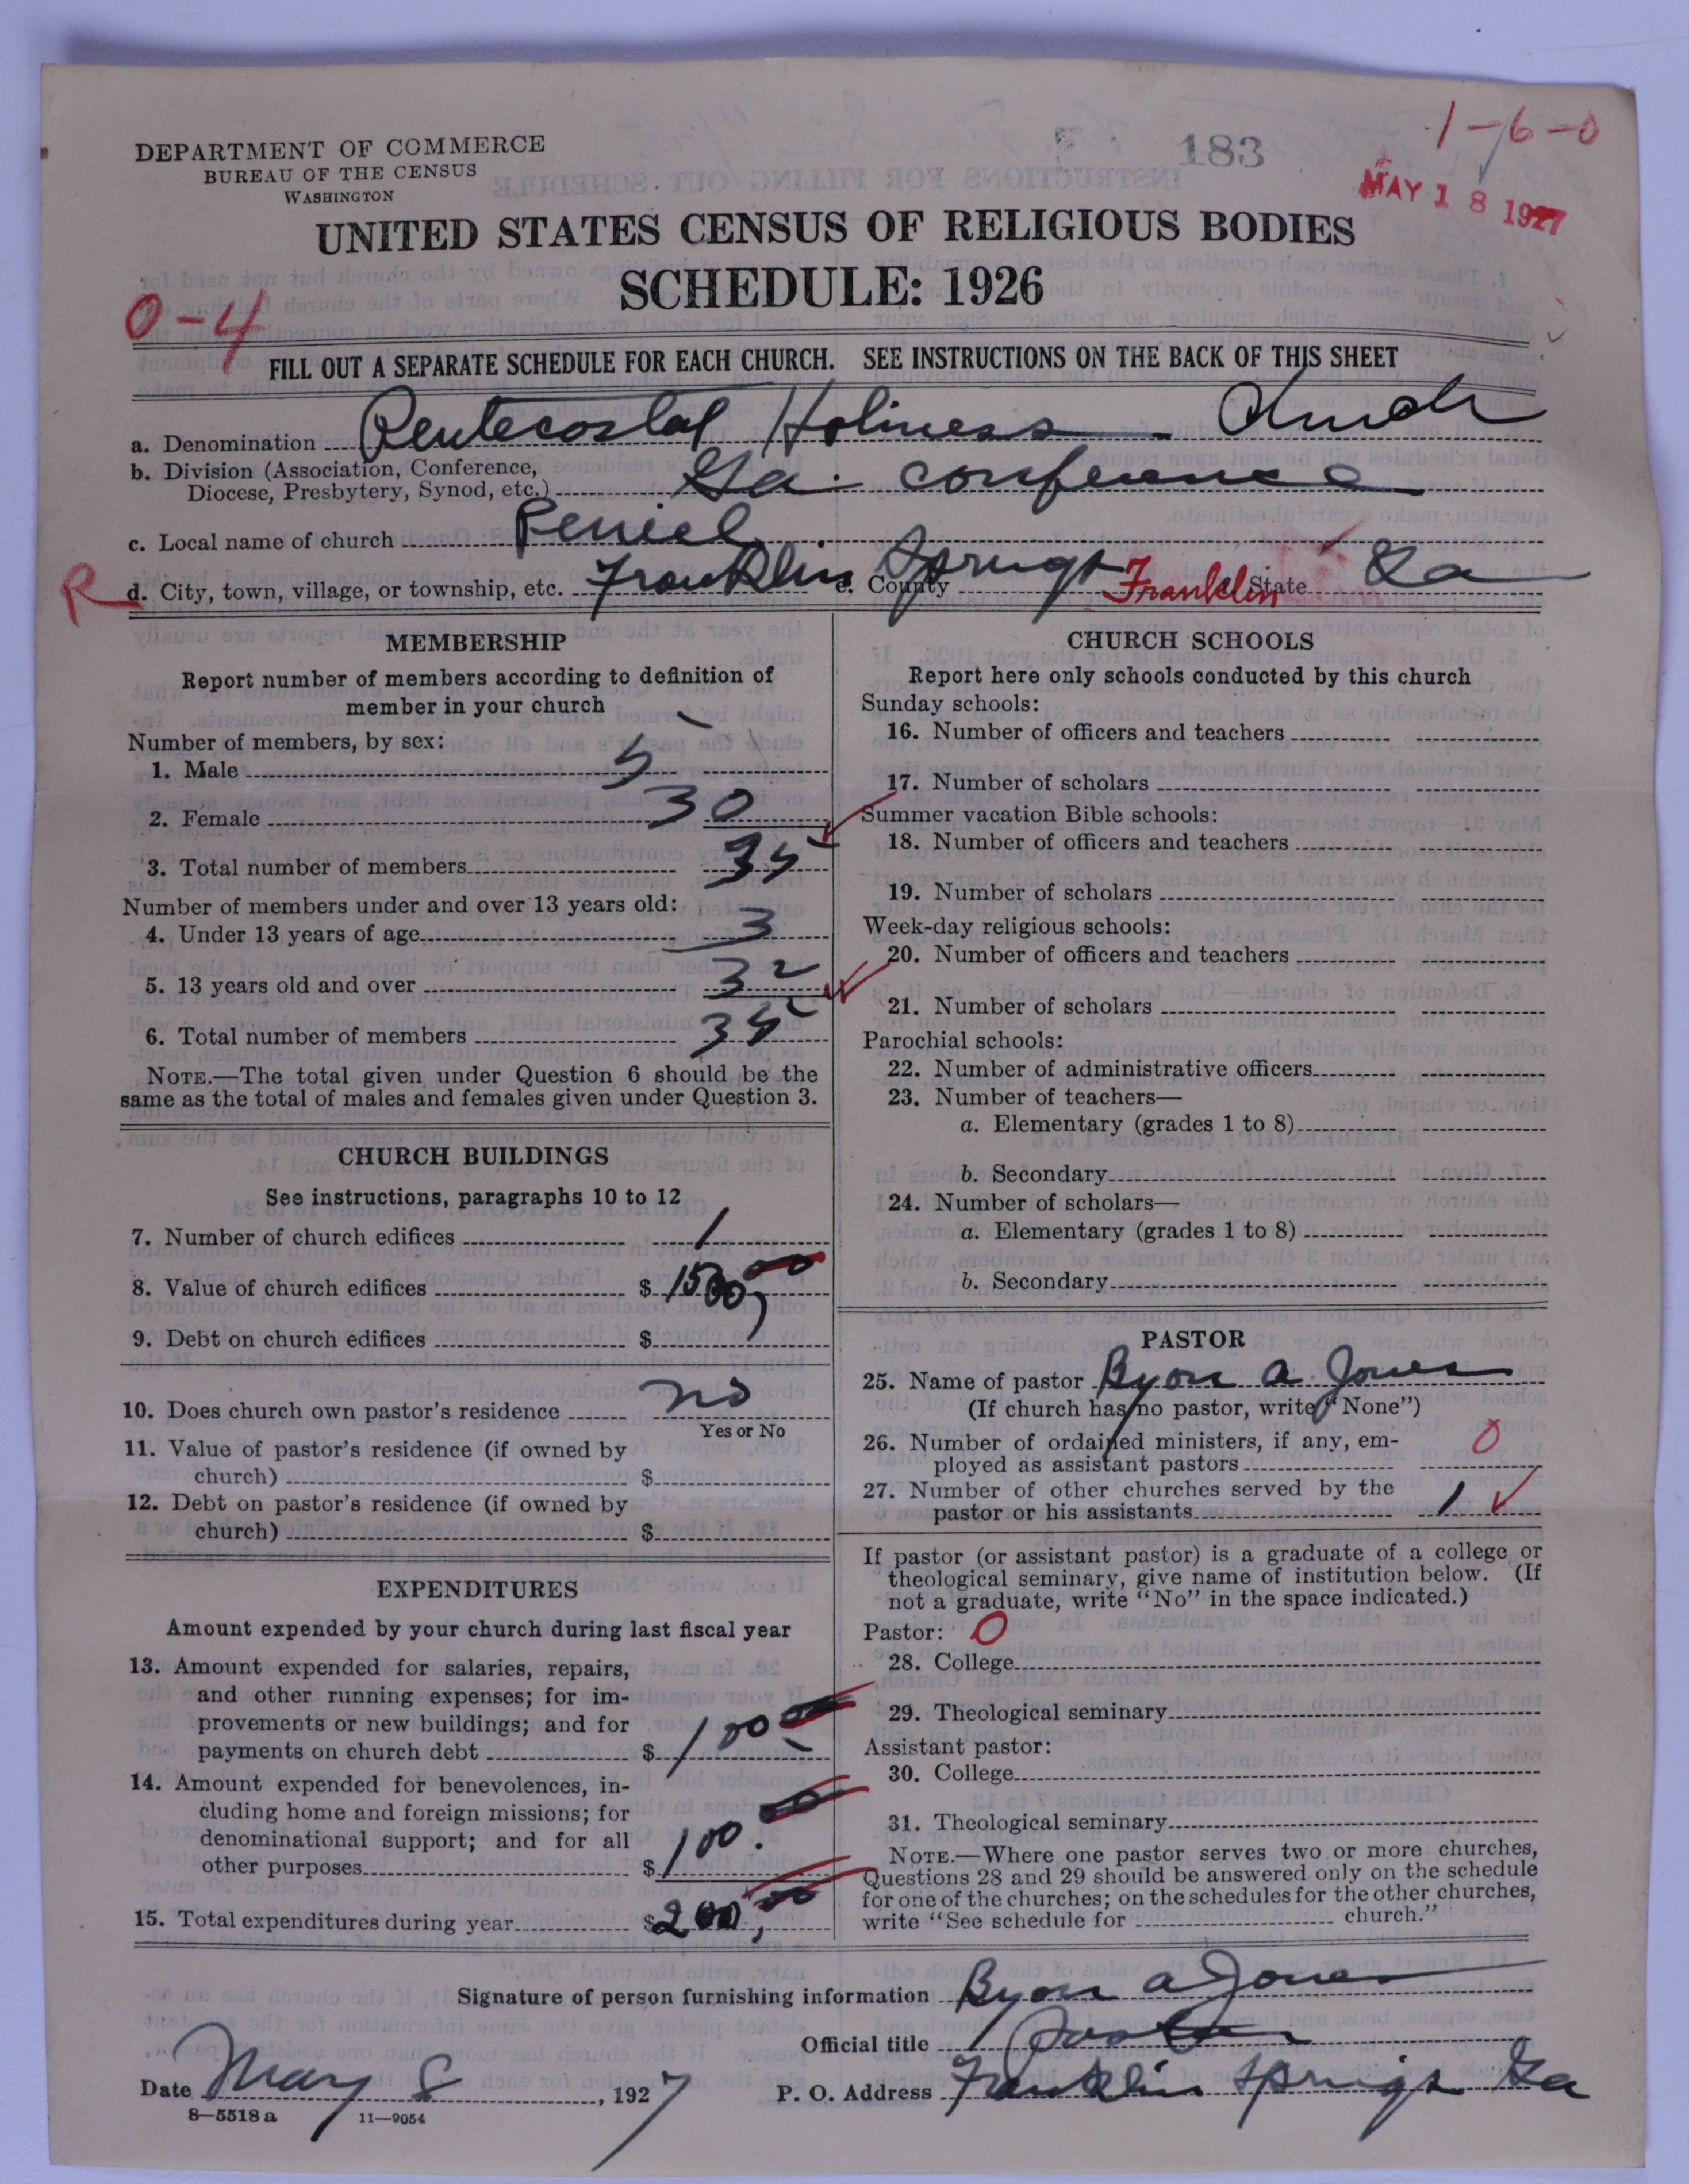 1-6-0
183
MAY 18 1927
DEPARTMENT OF COMMERCE
BUREAU OF THE CENSUS
WASHINGTON
UNITED STATES CENSUS OF RELIGIOUS BODIES
SCHEDULE: 1926
0-4
FILL OUT A SEPARATE SCHEDULE FOR EACH CHURCH. SEE INSTRUCTIONS ON THE BACK OF THIS SHEET
a. Denomination Pentecostal Holiness Church
b. Division (Association, Conference,
Diocese, Presbytery, Synod, etc.) Ga. conference
c. Local name of church Peniel
R d. City, town, village, or township, etc. Franklin Springs e. County Franklin State Ga
MEMBERSHIP
Report number of members according to definition of
member in your church
Number of members, by sex:
1. Male 5
2. Female 30
3. Total number of members 35
Number of members under and over 13 years old:
4. Under 13 years of age 3
5. 13 years old and over 32
6. Total number of members 35
NOTE.—The total given under Question 6 should be the
same as the total of males and females given under Question 3.
CHURCH BUILDINGS
See instructions, paragraphs 10 to 12
7. Number of church edifices 1
8. Value of church edifices $ 1500,00
9. Debt on church edifices $
10. Does church own pastor's residence no
Yes or No
11. Value of pastor's residence (if owned by
church) $
12. Debt on pastor's residence (if owned by
church) $
EXPENDITURES
Amount expended by your church during last fiscal year
13. Amount expended for salaries, repairs,
and other running expenses; for im-
provements or new buildings; and for
payments on church debt $ 100.00
14. Amount expended for benevolences, in-
cluding home and foreign missions; for
denominational support; and for all
other purposes $ 100.00
15. Total expenditures during year $ 200,00
CHURCH SCHOOLS
Report here only schools conducted by this church
Sunday schools:
16. Number of officers and teachers
17. Number of scholars
Summer vacation Bible schools:
18. Number of officers and teachers
19. Number of scholars
Week-day religious schools:
20. Number of officers and teachers
21. Number of scholars
Parochial schools:
22. Number of administrative officers
23. Number of teachers—
a. Elementary (grades 1 to 8)
b. Secondary
24. Number of scholars—
a. Elementary (grades 1 to 8)
b. Secondary
PASTOR
25. Name of pastor Byon A Jones
(If church has no pastor, write "None")
26. Number of ordained ministers, if any, em-
ployed as assistant pastors 0
27. Number of other churches served by the
pastor or his assistants 1
If pastor (or assistant pastor) is a graduate of a college or
theological seminary, give name of institution below. (If
not a graduate, write "No" in the space indicated.)
Pastor: 0
28. College
29. Theological seminary
Assistant pastor:
30. College
31. Theological seminary
NOTE.—Where one pastor serves two or more churches,
Questions 28 and 29 should be answered only on the schedule
for one of the churches; on the schedules for the other churches,
write "See schedule for church."
Signature of person furnishing information Byon A Jones
Official title Pastor
Date May 8, 1927 P. O. Address Franklin Springs Ga
8—5518 a 11—9054